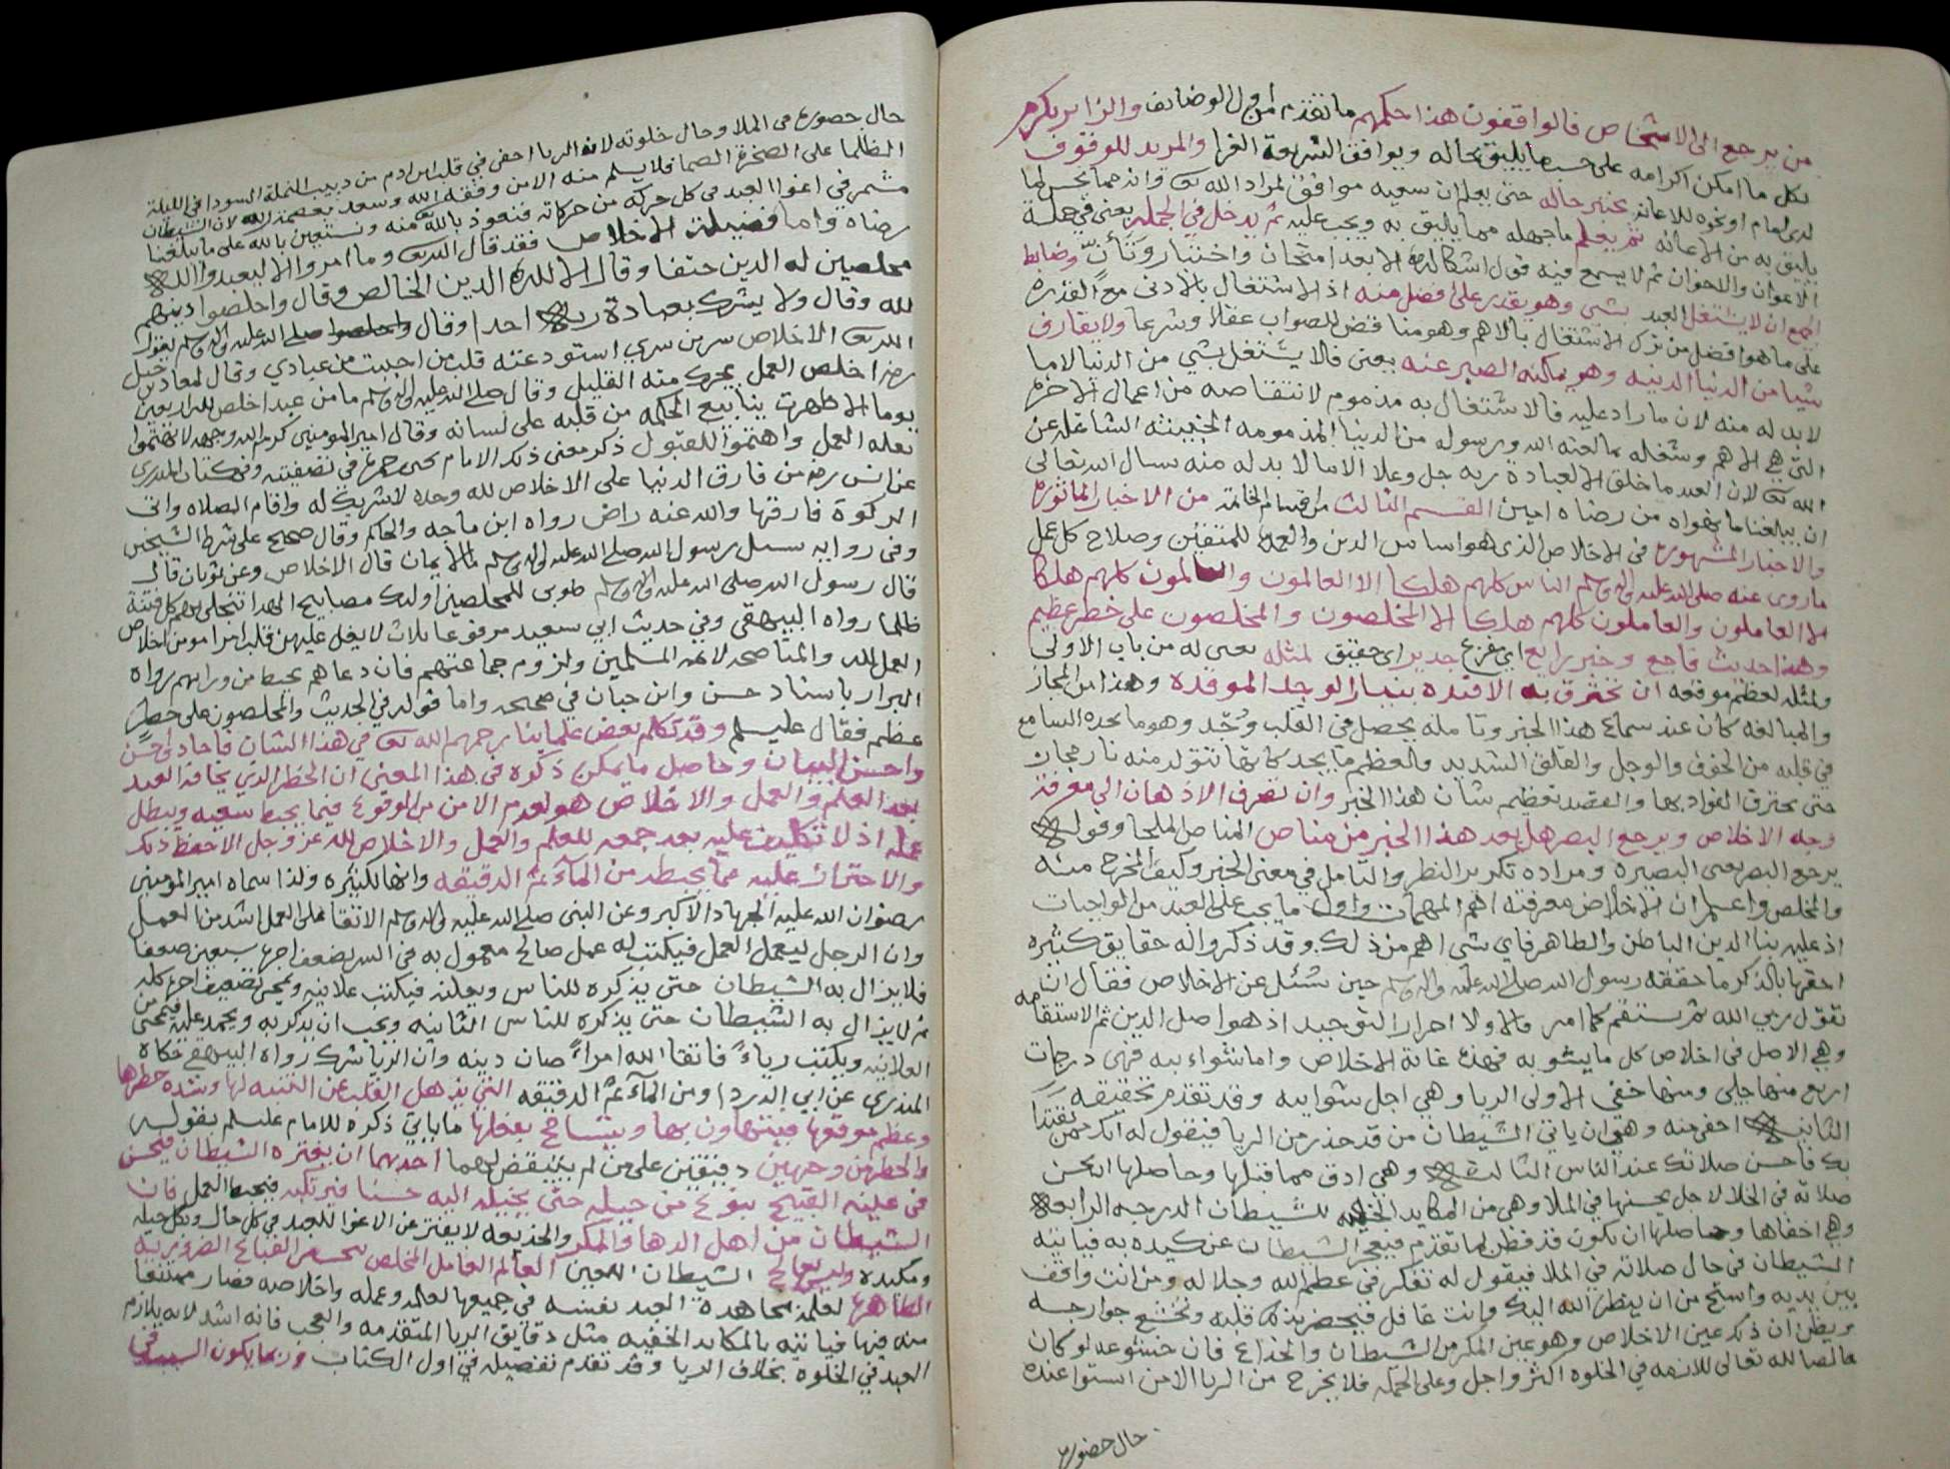 من يرجع الى الاشخاص فالواقفون هذا حكمهم ما تقدم اول الوضائف والزاير يكرم
بكل ما امكن اكرامه على حسب ما يليق بحاله ويوافق الشريعة الغرا والمريد للوقوف
لدى الامام او نحوه للاعانه يختبر حاله حتى يعلم ان سعيه موافق لمراد الله تعالى وانه ممن
يليق به من الاعانه ثم يعلم ما جهله مما يليق به ويجب عليه ثم يدخل في الجمله يعني في جملة
الاعوان والاخوان ثم لا يسمع فيه قول الا بعد امتحان واختبار وتأنّ وضابط
الجميع ان لا يشتغل العبد بشي وهو يقدر على افضل منه اذ الاشتغال بالادنى مع القدره
على ما هو افضل من ترك الاشتغال بالاهم وهو مناقض للصواب عقلا وشرعا ولا يقارف
شيا من الدنيا الدنيه وهو يمكنه الصبر عنه يعني فلا يشتغل بشي من الدنيا الا ما
لا بد له منه لان ما زاد عليه فالاشتغال به مذموم لانتقاصه من اعمال الاخره
التي هي الاهم وشغله بما لعنه الله ورسوله من الدنيا المذمومه الخبيثه الشاغله عن
الله تعالى لان العبد ما خلق الا لعبادة ربه جل وعلا الا ما لا بد له منه نسال الله تعالى
ان يبلغنا ما يهواه من رضاه امين القسم الثالث من اقسام الخاتمة من الاخبار الماثوره
والاخبار المشهوره في الاخلاص الذي هو اساس الدين والعمل للمتقين وصلاح كل عمل
ما روي عنه صلى الله عليه واله وسلم الناس كلهم هلكا الا العالمون والعالمون كلهم هلكا
الا العاملون والعاملون كلهم هلكا الا المخلصون والمخلصون على خطر عظيم
وهذا حديث فاجع وخبر رايع اي مفزع جدير اي حقيق لمثله يعني له من باب الاولى
ولمثله لعظم موقعه ان تحترق به الافئده بنار الوجد الموقده وهذا من المجاز
والمبالغه كان عند سماع هذا الخبر وتامله يحصل في القلب وَجْد وهو ما يجده السامع
في قلبه من الخوف والوجل والقلق الشديد والعظم ما يجد كانها تتولد منه نار
حتى يحترق الفواد بها والقصد تعظيم شان هذا الخبر وان تصرف الاذهان الى معرفة
وجه الاخلاص ويرجع البصر هل بعد هذا الخبر من مناص المناص الملجا وقوله
يرجع البصر يعني البصيره ومراده تكرير النظر والتامل في معنى الخبر وكيف المخرج منه
والمخلص واعلم ان الاخلاص معرفته اهم المهمات واول ما يجب على العبد من الواجبات
اذ عليه بنا الدين الباطن والظاهر فاي شي اهم من ذلك وقد ذكروا له حقايق كثيره
احقها بالذكر ما حققه رسول الله صلى الله عليه واله وسلم حين سُئل عن الاخلاص فقال ان
تقول ربي الله ثم تستقم كما امر فالاولا احراز التوحيد اذ هو اصل الدين ثم الاستقامه
وهي الاصل في اخلاص كل ما يشوبه فهذه غاية الاخلاص واما شوائبه فهي درجات
اربع منها جلي ومنها خفي الاولى الريا وهي اجل شوايبه وقد تقدم تحقيقه
الثانيه اخفى منه وهي ان ياتي الشيطان من قد حذر من الريا فيقول له انك ممن يقتدا
بك فاحسن صلاتك عند الناس الثالثه وهي ادق مما قبلها وحاصلها ان يحسن
صلاته في الخلا لاجل يحسنها في الملا وهي من المكايد الخفيه للشيطان الدرجه الرابعه
وهي اخفاها وحاصلها ان يكون قد فطن لما تقدم فيعجز الشيطان عن كيده به فياتيه
الشيطان في حال صلاته في الملا فيقول له تفكر في عظمة الله وجلاله ومن انت واقف
بين يديه واستحِ من ان ينظر الله اليك وانت غافل فيحضر بذلك قلبه وتخشع جوارحه
ويظن ان ذلك عين الاخلاص وهو عين المكر من الشيطان والخداع فان خشوعه لو كان
خالصا لله تعالى للازمه في الخلوه اكثر واجل وعلى الجمله فلا يخرج من الريا الا من استوا عنده
حال حضوره
حال حضوره في الملا وحال خلوته لان الريا اخفى في قلب ابن ادم من دبيب النملة السودا في الليلة
الظلما على الصخرة الصما فلا يسلم منه الا من وفقه الله وسعد بعصمة الله لان الشيطان
مشمر في اغوا العبد في كل حركه من حركاته فنعوذ بالله منه ونستعين بالله على ما يبلغنا
رضاه واما فضيلة الاخلاص فقد قال الله تعالى وما امروا الا ليعبدوا الله
مخلصين له الدين حنفا وقال الا لله الدين الخالص وقال واخلصوا دينهم
لله وقال ولا يشرك بعبادة ربه احدا وقال صلى الله عليه واله وسلم يقول
الله تعالى الاخلاص سر من سري استودعته قلب من احببت من عبادي وقال لمعاذ بن جبل
رضي اخلص العمل يجزك منه القليل وقال صلى الله عليه واله وسلم ما من عبد اخلص لله اربعين
يوما الا ظهرت ينابيع الحكمه من قلبه على لسانه وقال امير المومنين كرم الله وجهه لا تهتموا
لقله العمل واهتموا للقبول ذكر معنى ذلك الامام يحيى بن حمزه في تصفيته وفي كتاب المنذري
عن انس رضي من فارق الدنيا على الاخلاص لله وحده لا شريك له واقام الصلاه واتى
الزكوة فارقها والله عنه راض رواه ابن ماجه والحاكم وقال صحيح على شرط الشيخين
وفي روايه سئل رسول الله صلى الله عليه واله وسلم ما الايمان قال الاخلاص وعن ثوبان قال
قال رسول الله صلى الله عليه واله وسلم طوبى للمخلصين اوليك مصابيح الهدا تنجلي بهم كل فتنة
ظلما رواه البيهقي وفي حديث ابي سعيد مرفوعا ثلاث لا يغل عليهن قلب امرء مومن اخلاص
العمل لله والمناصحه لائمة المسلمين ولزوم جماعتهم فان دعاهم يحيط من ورائهم رواه
البزار باسناد حسن وابن حبان في صحيحه واما قوله في الحديث والمخلصون على خطر
عظيم فقال عليسلم وقد تكلم بعض علماينا رحمهم الله تعالى في هذا الشان فاجاد
واحسن البيان وحاصل ما يمكن ذكره في هذا المعنى ان الخطر الذي يخافه العبد
بعد العلم والعمل والاخلاص هو لعدم الامن من الوقوع فيما يحبط سعيه ويبطل
عمله اذ لا تكليف عليه بعد جمعه للعلم والعمل والاخلاص لله عز وجل الا حفظ ذلك
والاحتراز عليه مما يحبطه من المآثم الدقيقه وانها لكثيره ولذا سماه امير المومنين
رضوان الله عليه الجهاد الاكبر وعن النبي صلى الله عليه واله وسلم الاتقا على العمل اشد من العمل
وان الرجل ليعمل العمل فيكتب له عمل صالح معمول به في السر يضعف اجرها سبعين ضعفا
فلا يزال به الشيطان حتى يذكره للناس ويعلنه فيكتب علانيه ويمحى تضعيف اجره كله
ثم لا يزال به الشيطان حتى يذكره للناس الثانيه ويحب ان يذكر به ويحمد عليه فيمحى من
العلانيه ويكتب رياءً فاتقا الله امراءً صان دينه وان الريا شرك رواه البيهقي حكاه
المنذري عن ابي الدردا ومن المآثم الدقيقه التي يذهل القلب عن التنبه لها وشدة خطرها
وعظم موقعها فيتهاون بها ويتسامح بفعلها ما ياتي ذكره للامام عليسلم بقوله
والخطر من وجهين دقيقين على من لم يتيقض لهما احدهما ان يغتره الشيطان فيحسن
في عينه القبيح بنوع من حيله حتى يخيله اليه حسنا فيرتكبه فيحبط العمل فان
الشيطان من اهل الدها والمكر والخديعه لا يفتر عن الاغوا للعبد في كل حال وبكل حيله
ومكيده وليس يعالج الشيطان اللعين العالم العامل المخلص القبايح الضروريه
الظاهره لعلمه بمجاهدة العبد نفسه في جميعها لعلمه وعمله واخلاصه فصار ممتنعا
منه فيها فياتيه بالمكايد الخفيه مثل دقايق الريا المتقدمه والعجب فانه اشد لانه يلازم
العبد في الخلوه بخلاف الريا وقد تقدم تفصيله في اول الكتاب وربما يكون السبب في